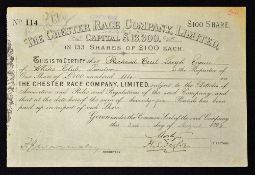 No 114
£100 SHARE.
THE CHESTER RACE COMPANY, LIMITED.
CAPITAL £13,300.
IN 133 SHARES OF £100 EACH.
THIS IS TO CERTIFY that Richard Cecil Leigh Esquire
White's Club, London is the Proprietor of
One Share of £100 numbered 114 in
THE CHESTER RACE COMPANY, LIMITED, subject to the Articles of
Association and Rules and Regulations of the said Company, and
that at the date hereof the sum of Pounds has been
paid up in respect of such Share.
Given under the Common Seal of the said Company
this day of August